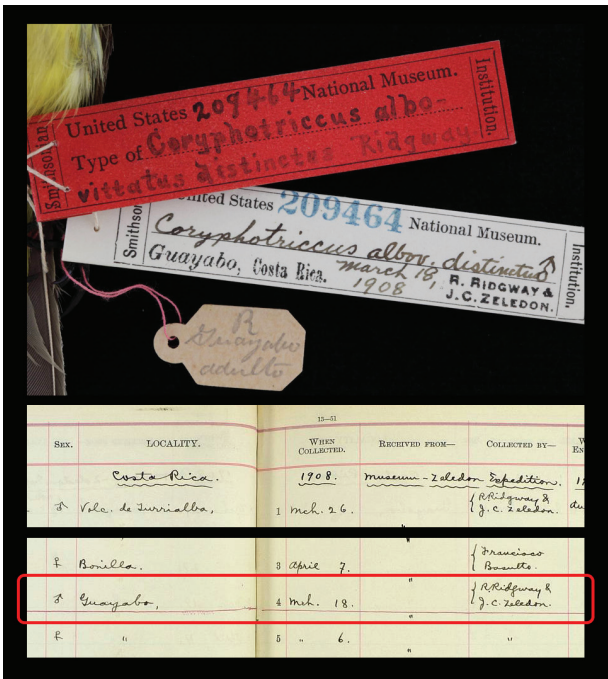 Smithsonian Institution.
United States 209464 National Museum.
Type of Coryphotriccus albo-
vittatus distinctus Ridgway
United States 209464 National Museum.
Smithson Institution.
Coryphotriccus albov. distinctus ♂
Guayabo, Costa Rica. March 18, 1908 R. RIDGWAY & J.C. ZELEDON.
R
Guayabo
adulto
15—51
SEX. LOCALITY. WHEN COLLECTED. RECEIVED FROM— COLLECTED BY—
Costa Rica. 1908. Museum-Zeledon Expedition.
♂ Volc. de Turrialba, 1 Mch. 26. " R. Ridgway & J. C. Zeledon.
♀ Bonilla. 3 April 7. " Francisco Basulto.
♂ Guayabo, 4 Mch. 18. " R. Ridgway & J. C. Zeledon.
♀ " 5 " 6. " "